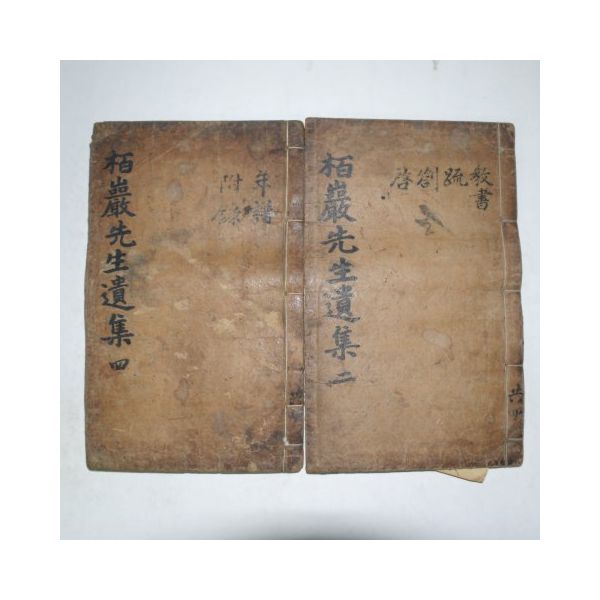 教書
疏
劄
啓
栢巖先生遺集 二
共四
年譜
附錄
栢巖先生遺集 四